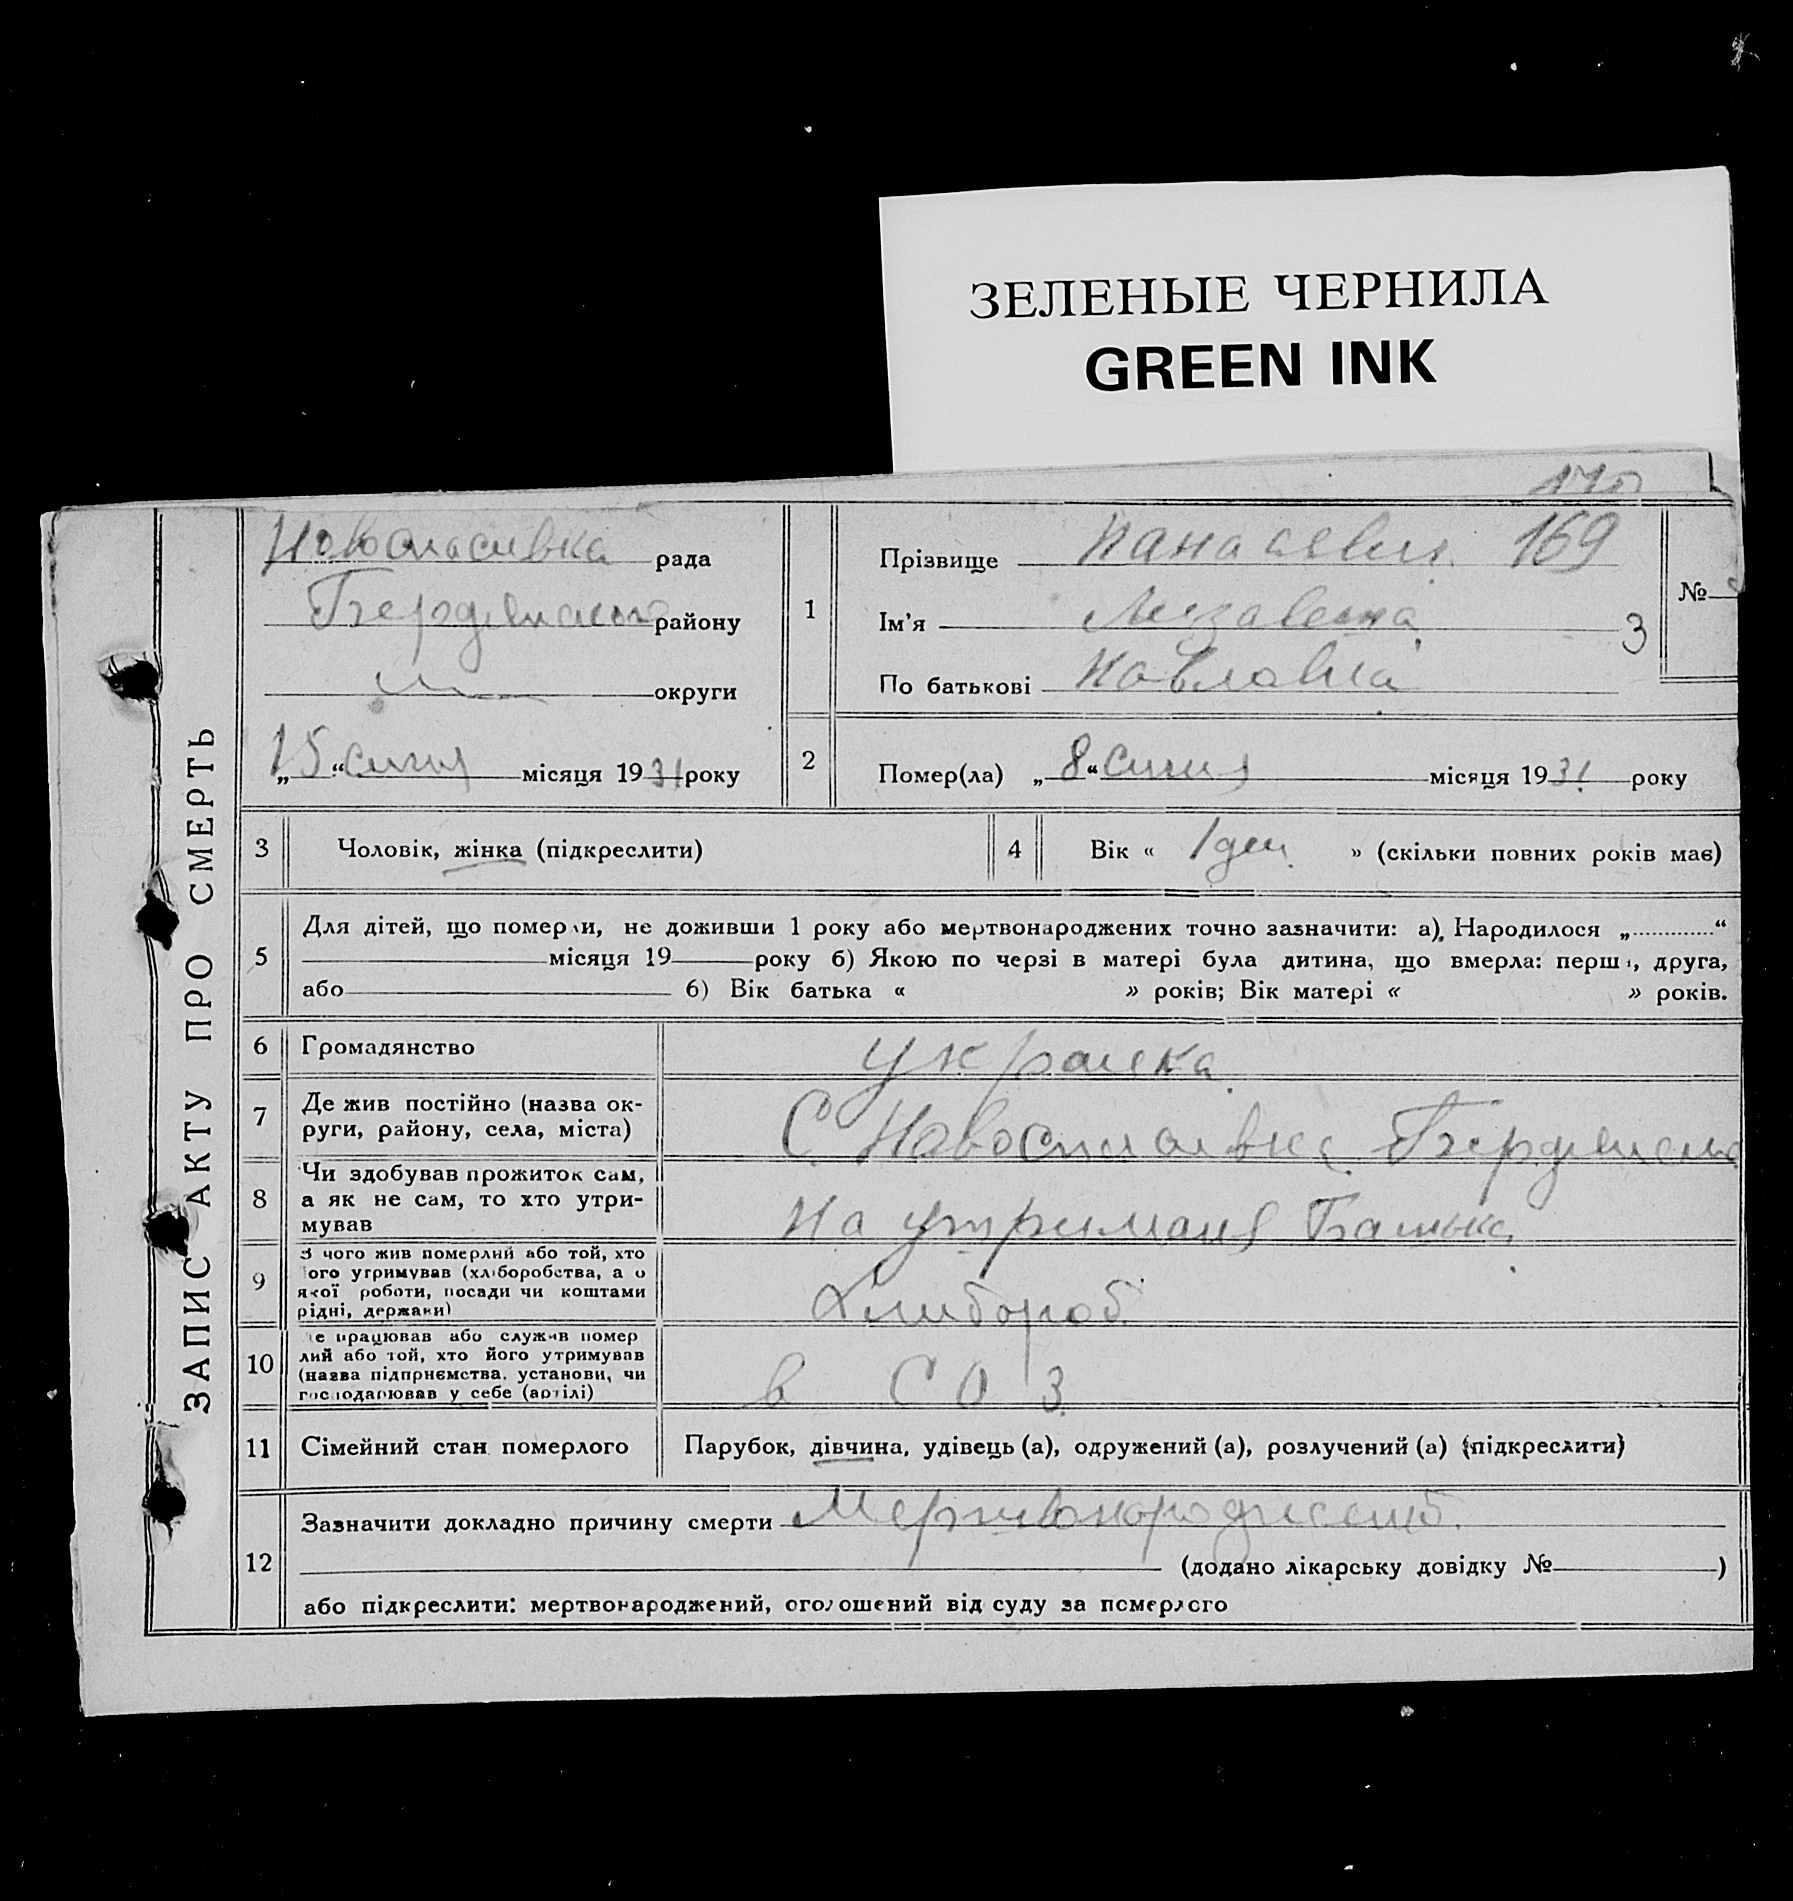 ЗЕЛЕНЫЕ ЧЕРНИЛА
GREEN INK
170
ЗАПИС АКТУ ПРО СМЕРТЬ
Новоспасивка рада
Бердянського району
округи
„15“ сичня місяця 1931 року
1
Прізвище Панасевич 169
Ім'я Лизавета 3
По батькові Павловна
№
2
Помер(ла) „8“ сичня місяця 1931 року
3 Чоловік, жінка (підкреслити)
4 Вік « 1 ден » (скільки повних років має)
5
Для дітей, що померли, не доживши 1 року або мертвонароджених точно зазначити: а) Народилося „............“
місяця 19 року б) Якою по черзі в матері була дитина, що вмерла: перша, друга,
або 6) Вік батька « » років; Вік матері « » років.
6 Громадянство украинка
7 Де жив постійно (назва ок-
руги, району, села, міста)
С. Новоспасивка Бердянсько
8 Чи здобував прожиток сам,
а як не сам, то хто утри-
мував
На утриманя Батька
9 З чого жив померлий або той, хто
його утримував (хліборобства, а о
якої роботи, посади чи коштами
рідні, держави)
Хлибороб
10 Де працював або служив помер
лий або той, хто його утримував
(назва підприємства, установи, чи
господарював у себе (артілі)
в С О З
11 Сімейний стан померлого Парубок, дівчина, удівець (а), одружений (а), розлучений (а) (підкреслити)
12
Зазначити докладно причину смерти
(додано лікарську довідку № )
або підкреслити: мертвонароджений, оголошений від суду за померлого